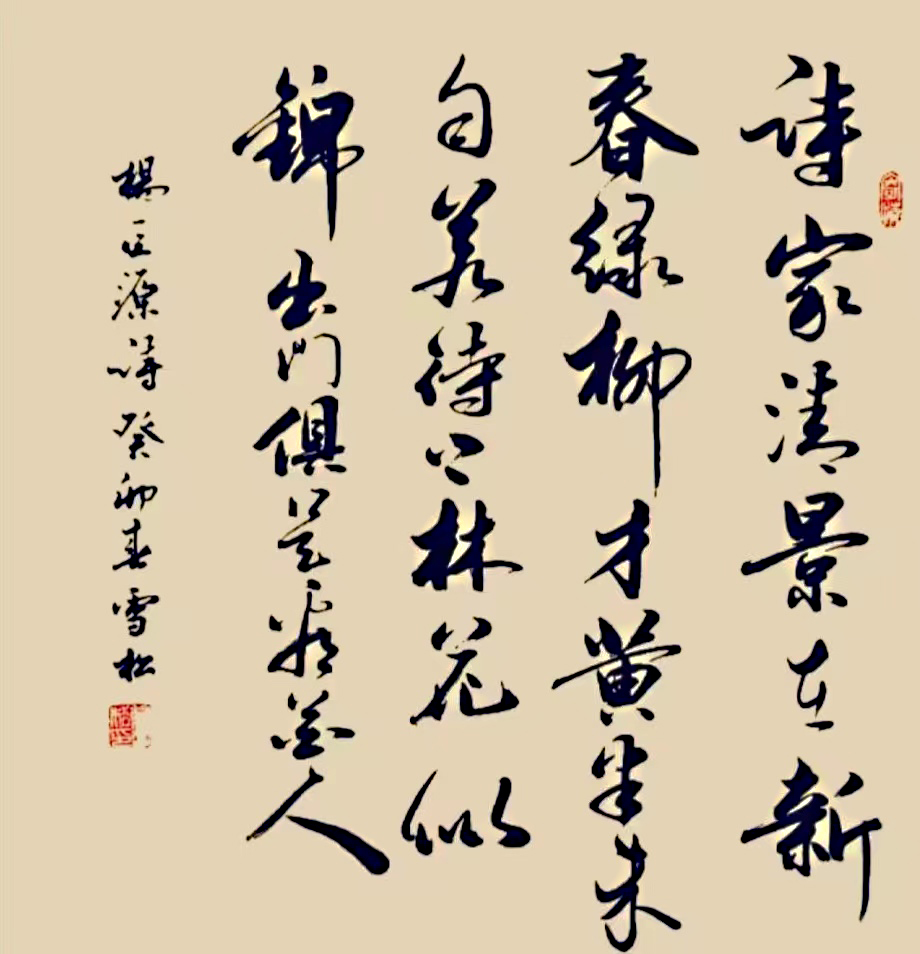 詩家清景在新
春緑柳才黄半未
匀若待上林花似
錦出門俱是看花人
楊巨源詩癸卯春雪松